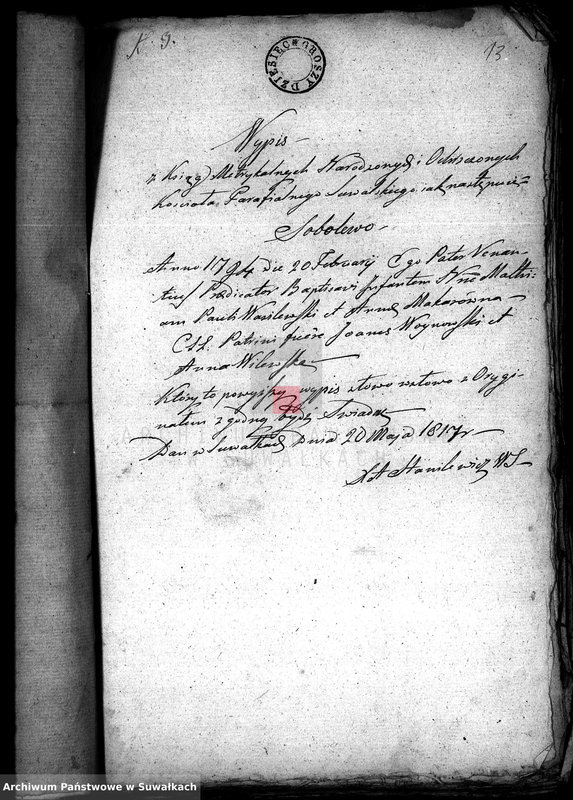 K. 9.
13
DZIESIĘC GROSZY
Wypis
z Ksiąg Metrykalnych Narodzonych i Ochrzczonych
Kościoła Parafialnego Suwalskiego jak następuie
Sobolewo
Anno 1794 die 20 Februarij Ego Pater Venan-
tius Prædicator Baptisavi Infantem Nne Mathi-
am Pauli Wasilewski et Anna Makarowna
C: LL. Patrini fuere Joanes Woynowski et
Anna Wilewska
Który to powyższy wypis słowo w słowo z Orygi-
nałem zgodny bydź Swiadczę
Dan w Suwałkach Dnia 20 Maja 1817 r
Stanilewicz WS
ARCHIWUM PAŃSTWOWE
W SUWAŁKACH
Archiwum Państwowe w Suwałkach